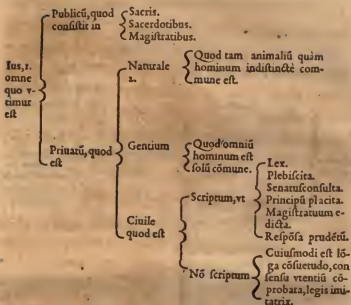 Publicũ, quod
consistit in
Sacris.
Sacerdotibus.
Magistratibus.
Ius, 1.
omne
quo v-
timur
est
Priuatũ, quod
est
Naturale
2.
Quod tam animaliũ quàm
hominum indistinctè com-
mune est.
Gentium
Quod omniũ
hominum est
solũ cõmune.
Ciuile
quod est
Scriptum, vt
Lex.
Plebiscita.
Senatusconsulta.
Principũ placita.
Magistratuum e-
dicta.
Respõsa prudẽtũ.
Nõ scriptum
Cuiusmodi est lõ-
ga cõsuetudo, con
sensu vtentiũ cõ-
probata, legis imi-
tatrix.